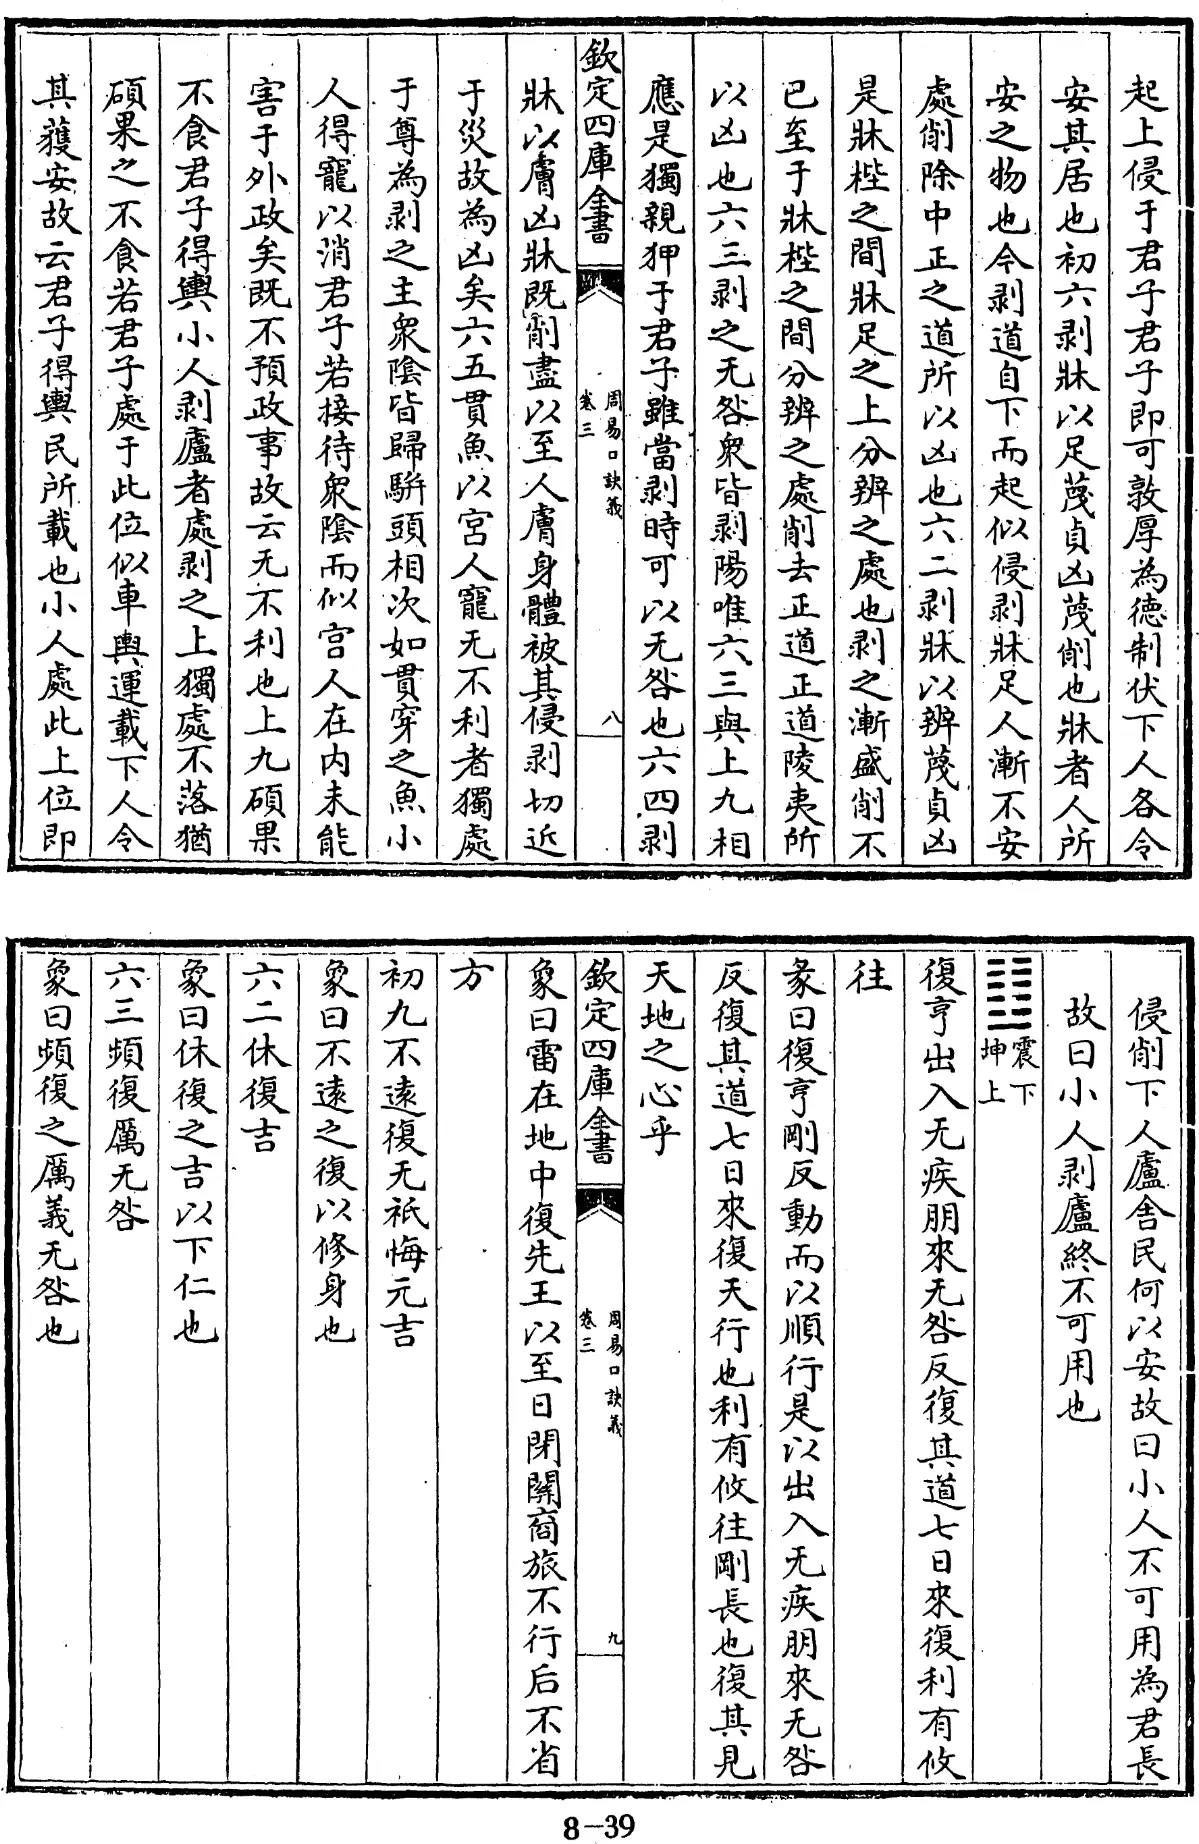 起上侵于君子君子即可敦厚為徳制伏下人各令
安其居也初六剥牀以足蔑貞凶蔑削也牀者人所
安之物也今剥道自下而起似侵剥牀足人漸不安
處削除中正之道所以凶也六二剥牀以辨蔑貞凶
是牀桎之間牀足之上分辨之處也剥之漸盛削不
已至于牀桎之間分辨之處削去正道正道陵夷所
以凶也六三剥之无咎衆皆剥陽唯六三與上九相
應是獨親狎于君子雖當剥時可以无咎也六四剥
欽定四庫全書
周易口訣義
卷三
八
牀以膚凶牀既削盡以至人膚身體被其侵剥切近
于災故為凶矣六五貫魚以宮人寵无不利者獨處
于尊為剥之主衆陰皆歸騈頭相次如貫穿之魚小
人得寵以消君子若接待衆陰而似宫人在内未能
害于外政矣既不預政事故云无不利也上九碩果
不食君子得輿小人剥廬者處剥之上獨處不落猶
碩果之不食若君子處于此位似車輿運載下人令
其蒦安故云君子得輿民所載也小人處此上位即
侵削下人廬舍民何以安故曰小人不可用為君長
故曰小人剥廬終不可用也
震下
坤上
復亨出入无疾朋來无咎反復其道七日來復利有攸
往
彖曰復亨剛反動而以順行是以出入无疾朋來无咎
反復其道七日來復天行也利有攸往剛長也復其見
天地之心乎
欽定四庫全書
周易口訣義
卷三
九
象曰雷在地中復先王以至日閉關商旅不行后不省
方
初九不遠復无祇悔元吉
象曰不遠之復以修身也
六二休復吉
象曰休復之吉以下仁也
六三頻復厲无咎
象曰頻復之厲義无咎也
8-39